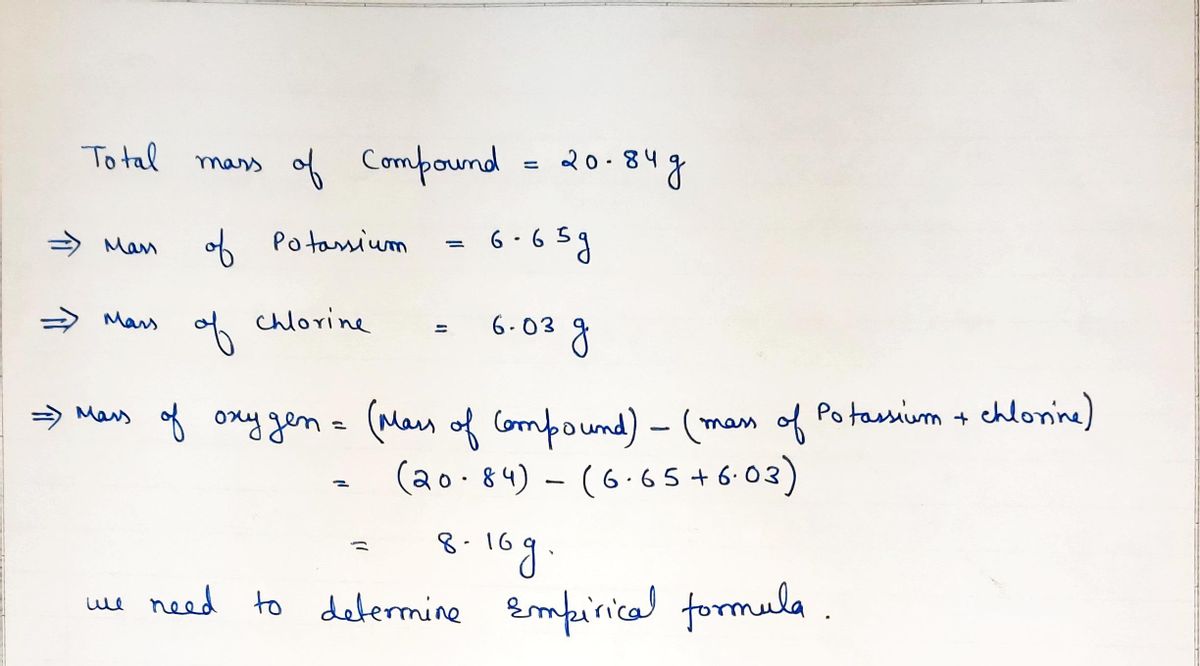 Total mass of Compound = 20.84 g
⇒ Mass of Potassium = 6.65g
⇒ Mass of chlorine = 6.03 g
⇒ Mass of oxygen = (Mass of Compound) - (mass of Potassium + chlorine)
= (20.84) - (6.65 + 6.03)
= 8.16 g.
we need to determine Empirical formula.